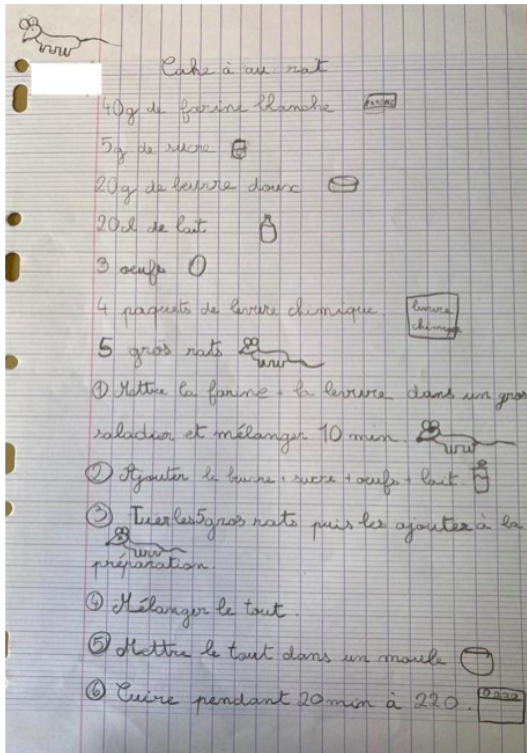 Cake à au rat
40g de farine blanche farine
5g de sucre
20g de beurre doux
20cl de lait
3 oeufs
4 paquets de levure chimique. levure
chimique
5 gros rats
① Mettre la farine + la levure dans un gros
saladier et mélanger 10 min.
② Ajouter le beurre + sucre + oeufs + lait.
③ Tuer les 5 gros rats puis les ajouter à la
préparation.
④ Mélanger le tout.
⑤ Mettre le tout dans un moule
⑥ Cuire pendant 20 min à 220. 0220